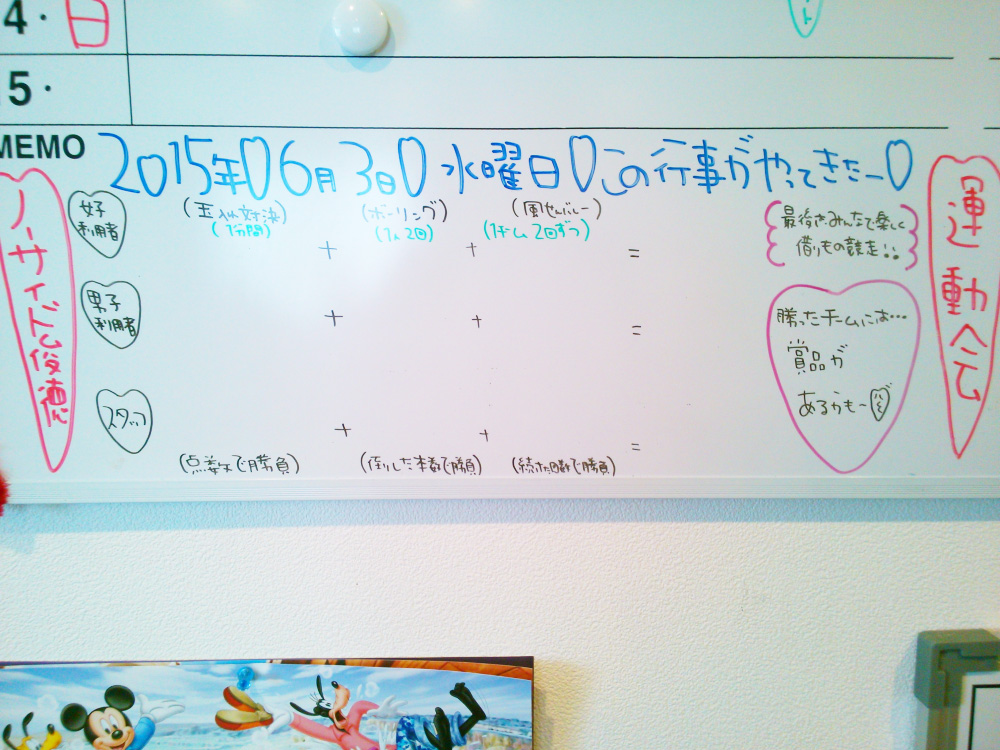 4・日
15・
MEMO
2015年06月3日水曜日この行事がやってきたー
ノーサイド俊徳
運動会
女子
利用者
(玉入れ対決)
(1分間)
(ボーリング)
(1人2回)
(風せんバレー)
(1チーム2回ずつ)
+
+
=
最後は、みんなで楽しく
借りもの競走!!
男子
利用者
+
+
=
勝ったチームには…
賞品が
あるかもー
スタッフ
+
+
=
(点数で勝負)
(倒した本数で勝負)
(続けた回数で勝負)